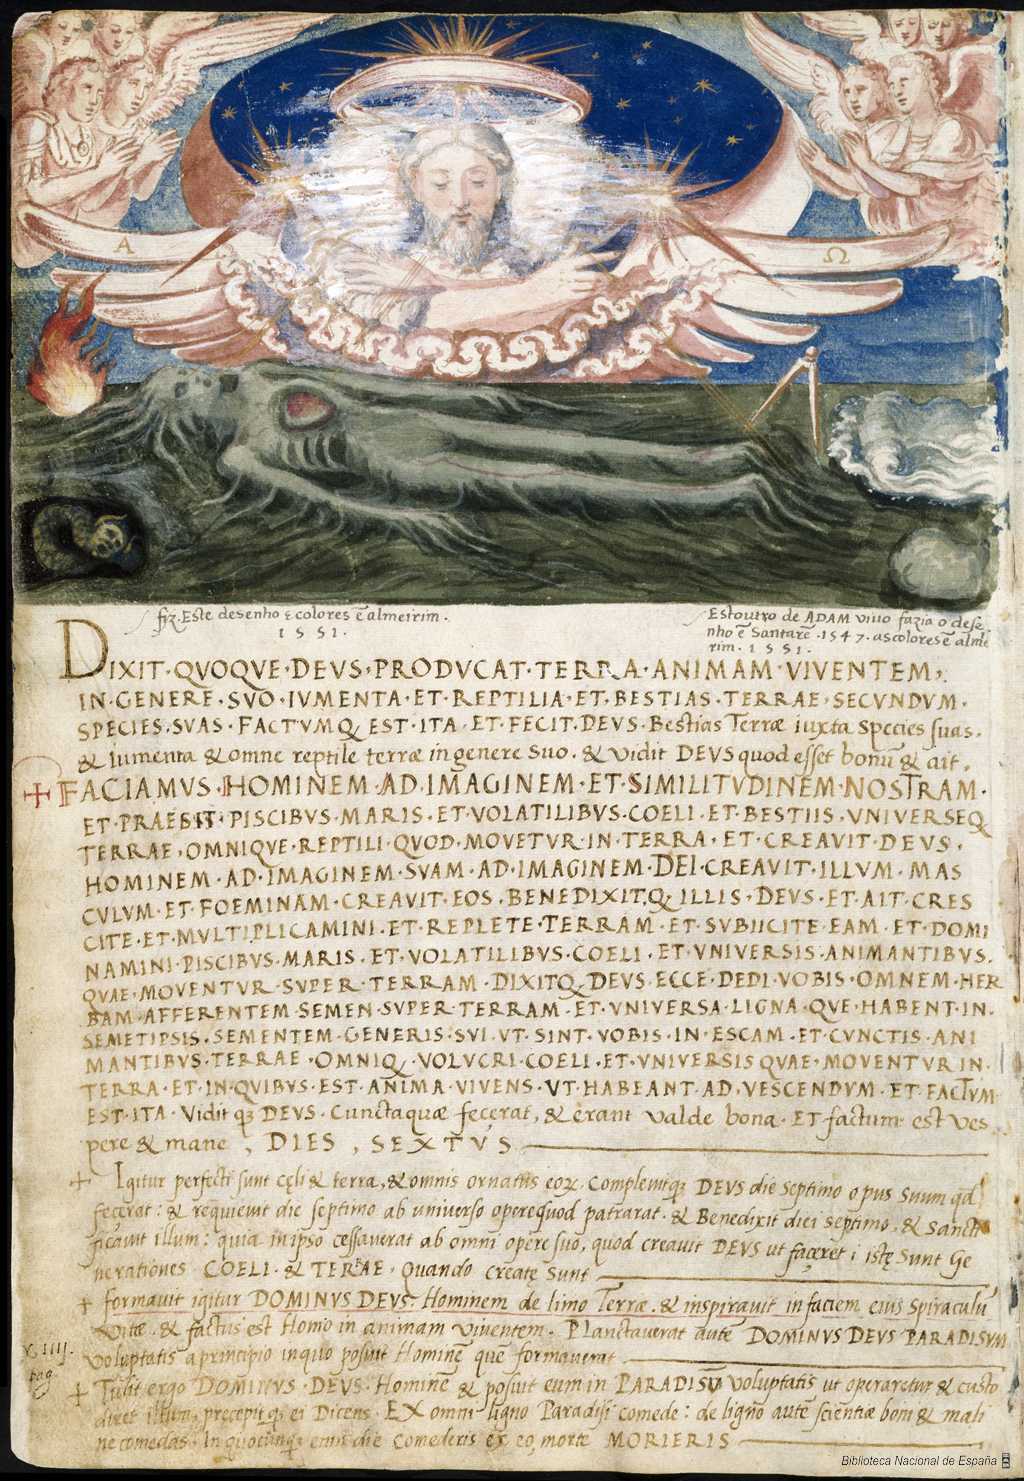 A
Ω
fiz. Este desenho & colores ē almeirim.
1551.
Estoutro de ADAM vivo fazia o dese
nho ē Santarē .1547. as colores ē alme
rim. 1551.
DIXIT·QVOQVE·DEVS·PRODVCAT·TERRA·ANIMAM·VIVENTEM,
IN·GENERE·SVO·IVMENTA·ET·REPTILIA·ET·BESTIAS·TERRAE·SECVNDVM·
SPECIES·SVAS·FACTVMQ EST·ITA·ET·FECIT·DEVS·Bestias Terræ iuxta Species suas.
& Iumenta & omne reptile terræ in genere suo. & vidit DEVS quod esset bonū & ait.
+ FACIAMVS·HOMINEM·AD·IMAGINEM·ET·SIMILITVDINEM·NOSTRAM·
ET·PRAESIT·PISCIBVS·MARIS·ET·VOLATILIBVS·COELI·ET·BESTIIS·VNIVERSEQ
TERRAE·OMNIQVE·REPTILI·QVOD·MOVETVR·IN·TERRA·ET·CREAVIT·DEVS·
HOMINEM·AD·IMAGINEM·SVAM·AD·IMAGINEM·DEI·CREAVIT·ILLVM·MAS
CVLVM·ET·FOEMINAM·CREAVIT·EOS·BENEDIXITQ ILLIS·DEVS·ET·AIT·CRES
CITE·ET·MVLTIPLICAMINI·ET·REPLETE·TERRAM·ET·SVBIICITE·EAM·ET·DOMI
NAMINI·PISCIBVS·MARIS·ET·VOLATILIBVS·COELI·ET·VNIVERSIS·ANIMANTIBVS·
QVAE·MOVENTVR·SVPER·TERRAM·DIXITQ DEVS·ECCE·DEDI·VOBIS·OMNEM·HER
BAM·AFFERENTEM·SEMEN·SVPER·TERRAM·ET·VNIVERSA·LIGNA·QVE·HABENT·IN·
SEMETIPSIS·SEMENTEM·GENERIS·SVI·VT·SINT·VOBIS·IN·ESCAM·ET·CVNCTIS·ANI
MANTIBVS·TERRAE·OMNIQ·VOLVCRI·COELI·ET·VNIVERSIS QVAE·MOVENTVR IN·
TERRA·ET·IN·QVIBVS·EST·ANIMA·VIVENS·VT·HABEANT·AD·VESCENDVM·ET·FACTVM
EST·ITA·Vidit qꝫ DEVS·Cuncta quæ fecerat, & erant valde bona·ET factum est ves
pere & mane, DIES, SEXTVS
+ Igitur perfecti sunt cęli & terra, & omnis ornatus eoꝝ. Complevitqꝫ DEVS die Septimo opus Suum qd̄
fecerat: & requievit die septimo ab universo opere quod patrarat. & Benedixit diei septimo, & Sancti
ficavit illum: quia in ipso cessaverat ab omni opere suo, quod creavit DEVS ut faceret i istę Sunt Ge
nerationes COELI·& TERAE·Quando creatę Sunt
+ formavit igitur DOMINVS DEVS: Hominem de limo Terræ. & inspiravit in faciem eius Spiraculū
Vitæ. & factus est Homo in animam viventem. Planctaverat autē DOMINVS DEVS PARADISVM
Voluptatis a principio in quo posuit Hominē quē formaverat
+ Tulit ergo DOMINVS·DEVS·Hominē & posuit eum in PARADISV voluptatis ut operaretur & custo
diret illum, precepit qꝫ ei Dicens·EX omni ligno Paradisi comede: de ligno autē scientiæ boni & mali
ne comedas. In quocunqꝫ enim die Comederis ex eo, morte MORIERIS
Biblioteca Nacional de España